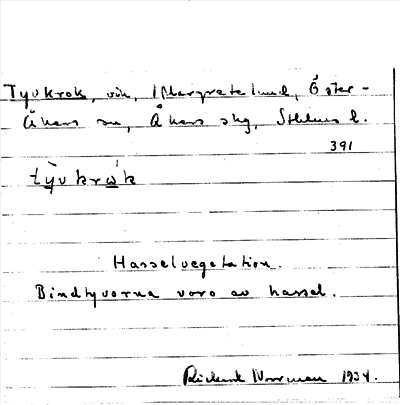 Tyvkrok, vik, Margretelund, Öster-
Åkers sn, Åkers skg, Sthlms l.
391
tỳvkrẃk
Hasselvegetation.
Bindtyvorna voro av hassel.
Rickard Norrman 1934.